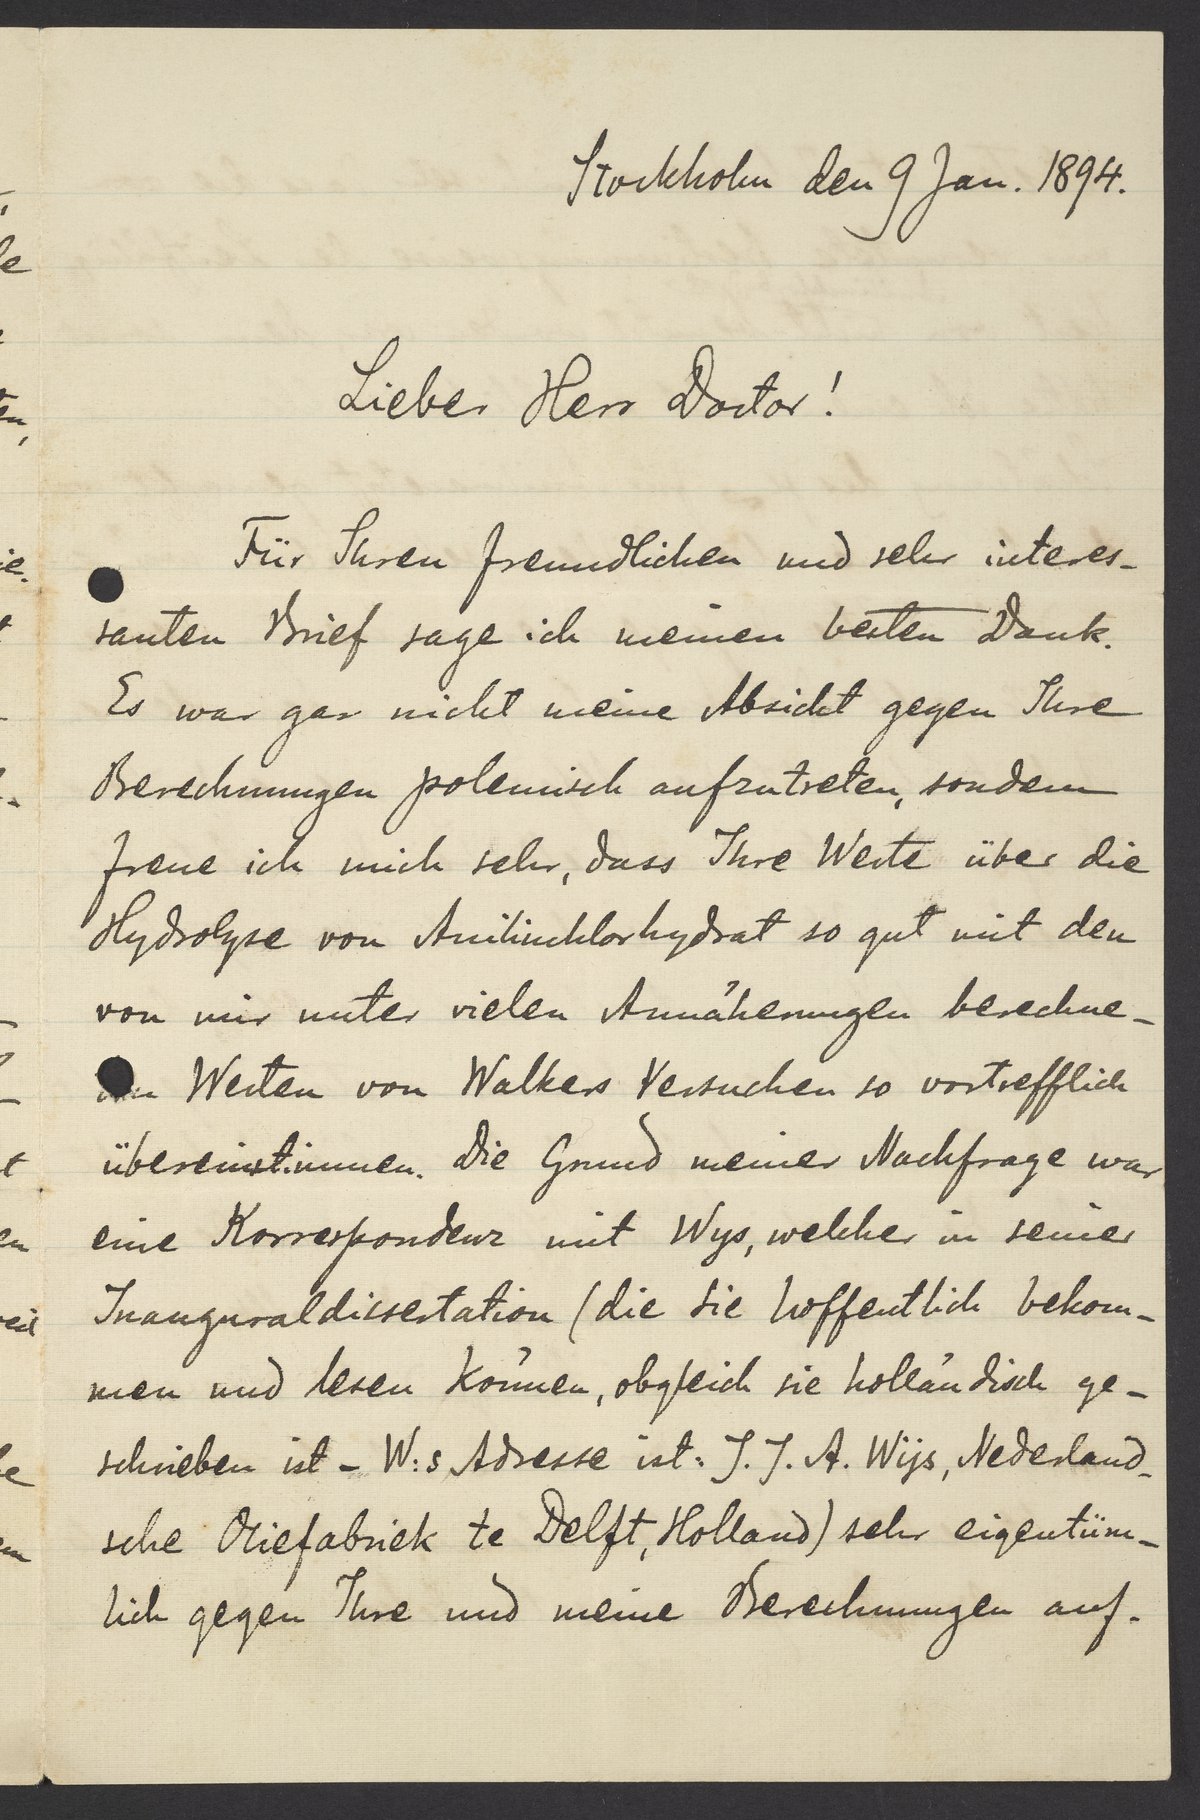 Stockholm den 9 Jan. 1894.
Lieber Herr Doctor!
Für Ihren freundlichen und sehr interes-
santen Brief sage ich meinen besten Dank.
Es war gar nicht meine Absicht gegen Ihre
Berechnungen polemisch aufzutreten, sondern
freue ich mich sehr, dass Ihre Werte über die
Hydrolyse von Anilinchlorhydrat so gut mit den
von mir unter vielen Annäherungen berechne-
Werten von Walkers Versuchen so vortrefflich
übereinstimmen. Die Grund meiner Nachfrage war
eine Korrespondenz mit Wys, welcher in seiner
Inauguraldissertation (die Sie hoffentlich bekom-
men und lesen können, obgleich sie holländisch ge-
schrieben ist - W:s Adresse ist: J. J. A. Wijs, Nederland-
sche Oliefabriek te Delft, Holland) sehr eigentüm-
lich gegen Ihre und meine Berechnungen auf-